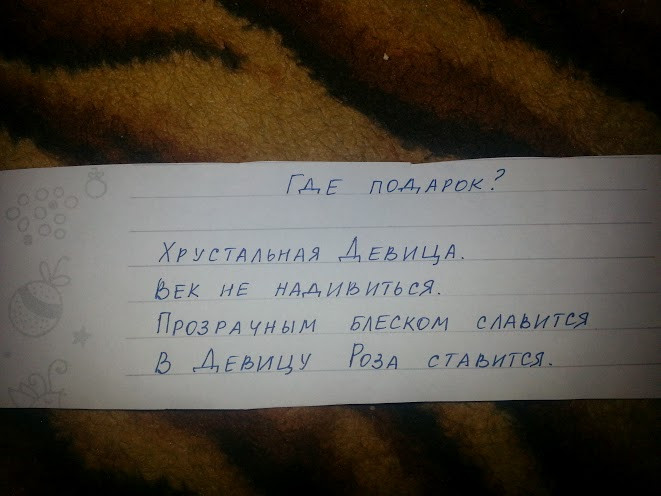 Где подарок?
Хрустальная Девица.
Век не надивиться.
Прозрачным блеском славится
В Девицу Роза ставится.